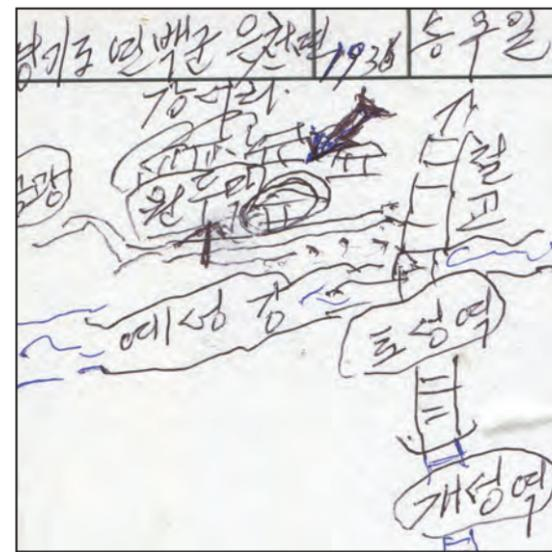 경기도 연백군 은천면 1936 승우일
강서리.
금광
원두막
철교
예성강
토성역
개성역